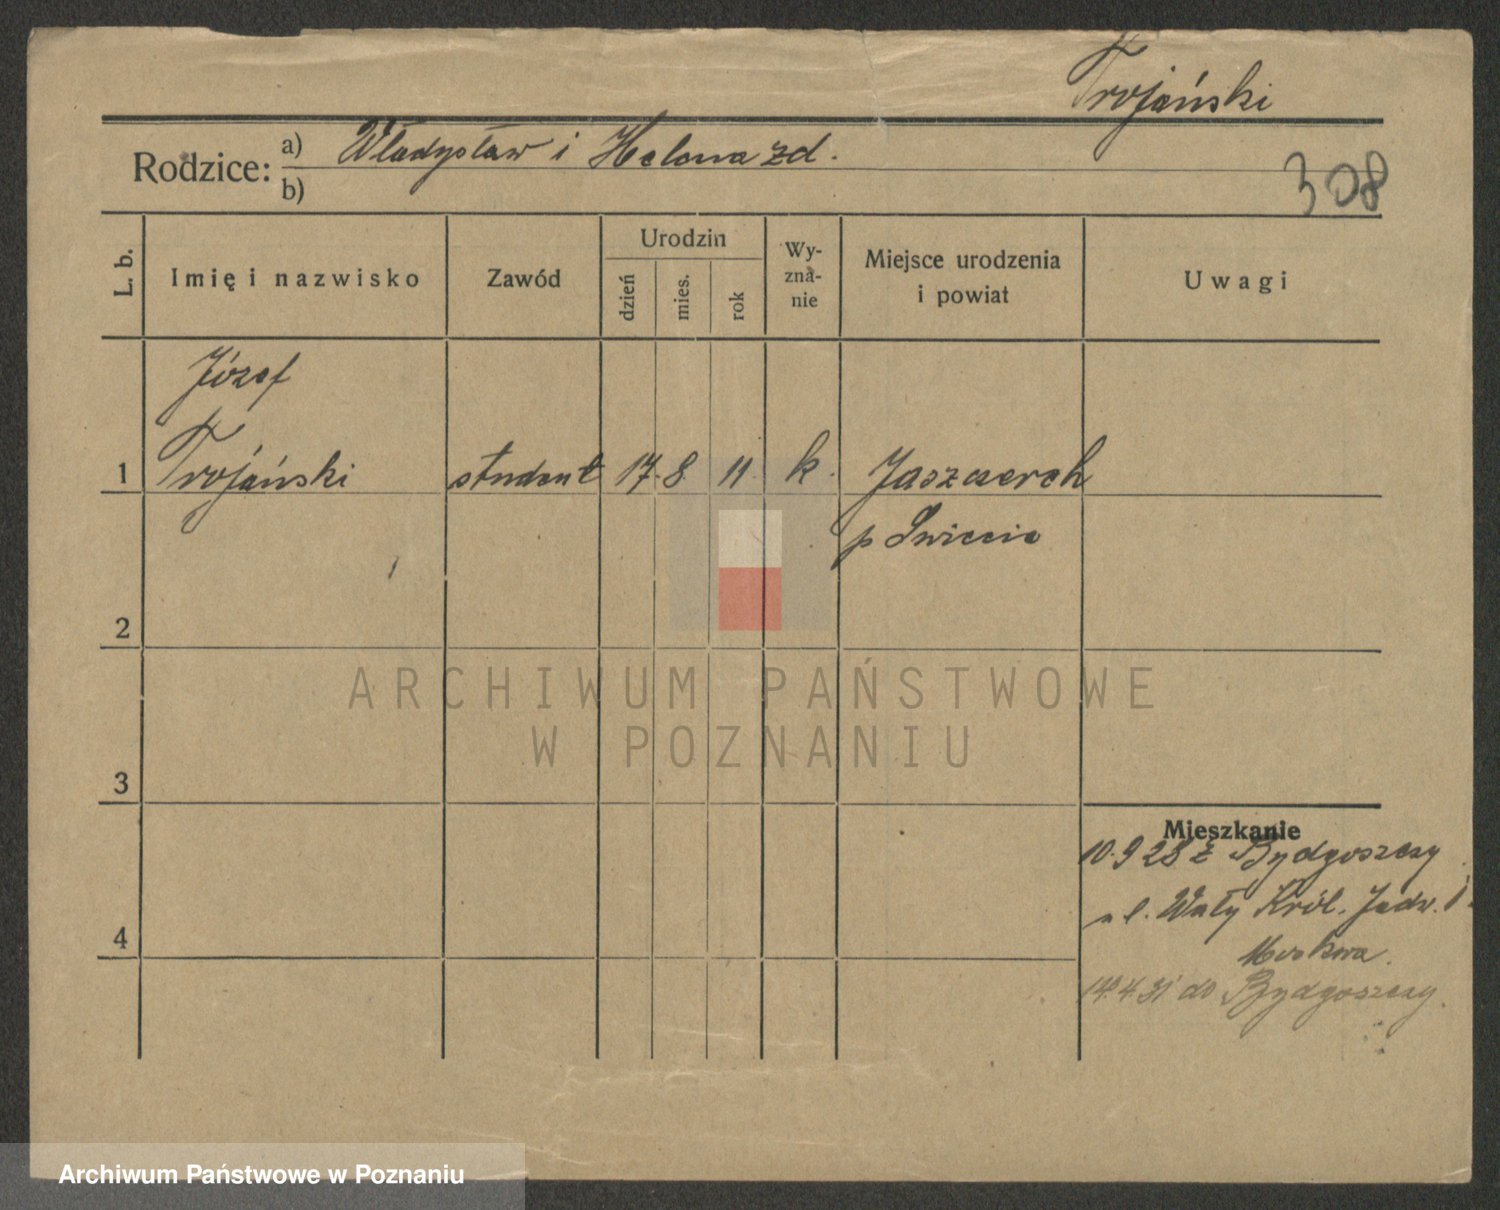 Trojański
Rodzice: a) Władysław i Helena zd.
b)
308
L. b.
Imię i nazwisko
Zawód
Urodzin
dzień
mies.
rok
Wy-
zna-
nie
Miejsce urodzenia
i powiat
Uwagi
Józef
1 Trojański student 17. 8. 11 k. Jaszczerek
p Świecie
2
3
4
Mieszkanie
10.9 28 z Bydgoszczy
ul. Wały Król. Jadw. 1.
14.4 31 do Bydgoszczy.
ARCHIWUM PAŃSTWOWE
W POZNANIU
Archiwum Państwowe w Poznaniu